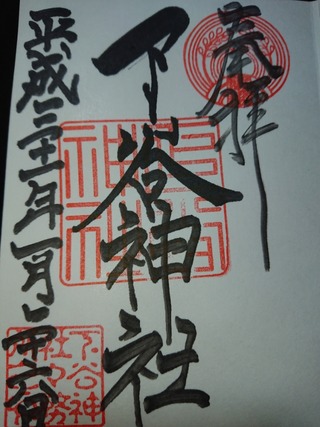 奉拝
下谷神社
下谷
神社
平成二十一年一月二十六日
下谷神